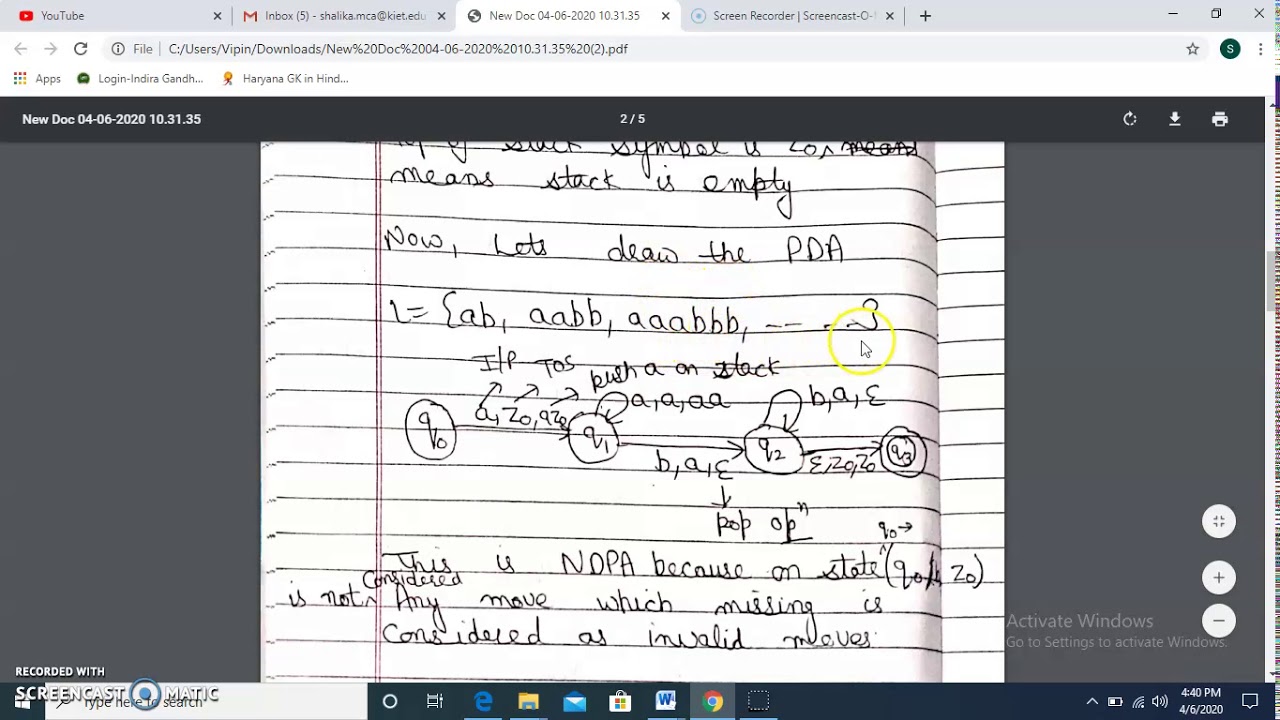 YouTube
Inbox (5) - shalika.mca@kiet.edu
New Doc 04-06-2020 10.31.35
Screen Recorder | Screencast-O-
File
C:/Users/Vipin/Downloads/New%20Doc%2004-06-2020%2010.31.35%20(2).pdf
S
Apps
Login-Indira Gandh...
Haryana GK in Hind...
New Doc 04-06-2020 10.31.35
2 / 5
of stack symbol is Z0, means
means stack is empty
Now, Lets draw the PDA
L = {ab, aabb, aaabbb, -- . --}
I/P TOS push a on stack
a, Z0, aZ0 a, a, aa b, a, ε
q0 q1 q2 q3
b, a, ε ε, Z0, Z0
pop opn
q0→
This is NDPA because on state (q0, Z0)
considered
is not. Any move which missing is
Considered as invalid moves.
Activate Windows
Go to Settings to activate Windows.
RECORDED WITH
SCREENCAST MATIC
Type here to search
4:40 PM
4/6/2020